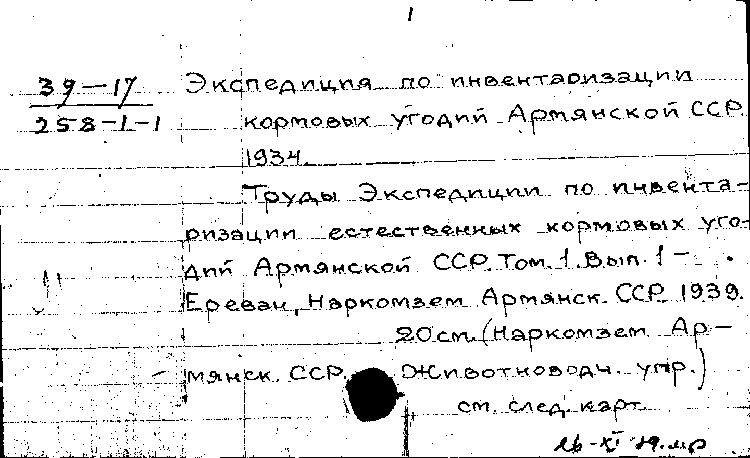 1
39-17 Экспедиция по инвентаризации
258-1-1 кормовых угодий Армянской ССР
1934.
Труды Экспедиции по инвента-
ризации естественных кормовых уго-
дий Армянской ССР. Том 1. Вып. 1 - .
Ереван, Наркомзем Армянск. ССР. 1939.
20 см. (Наркомзем Ар-
мянск. ССР. Животноводч. упр.)
см. след. карт.